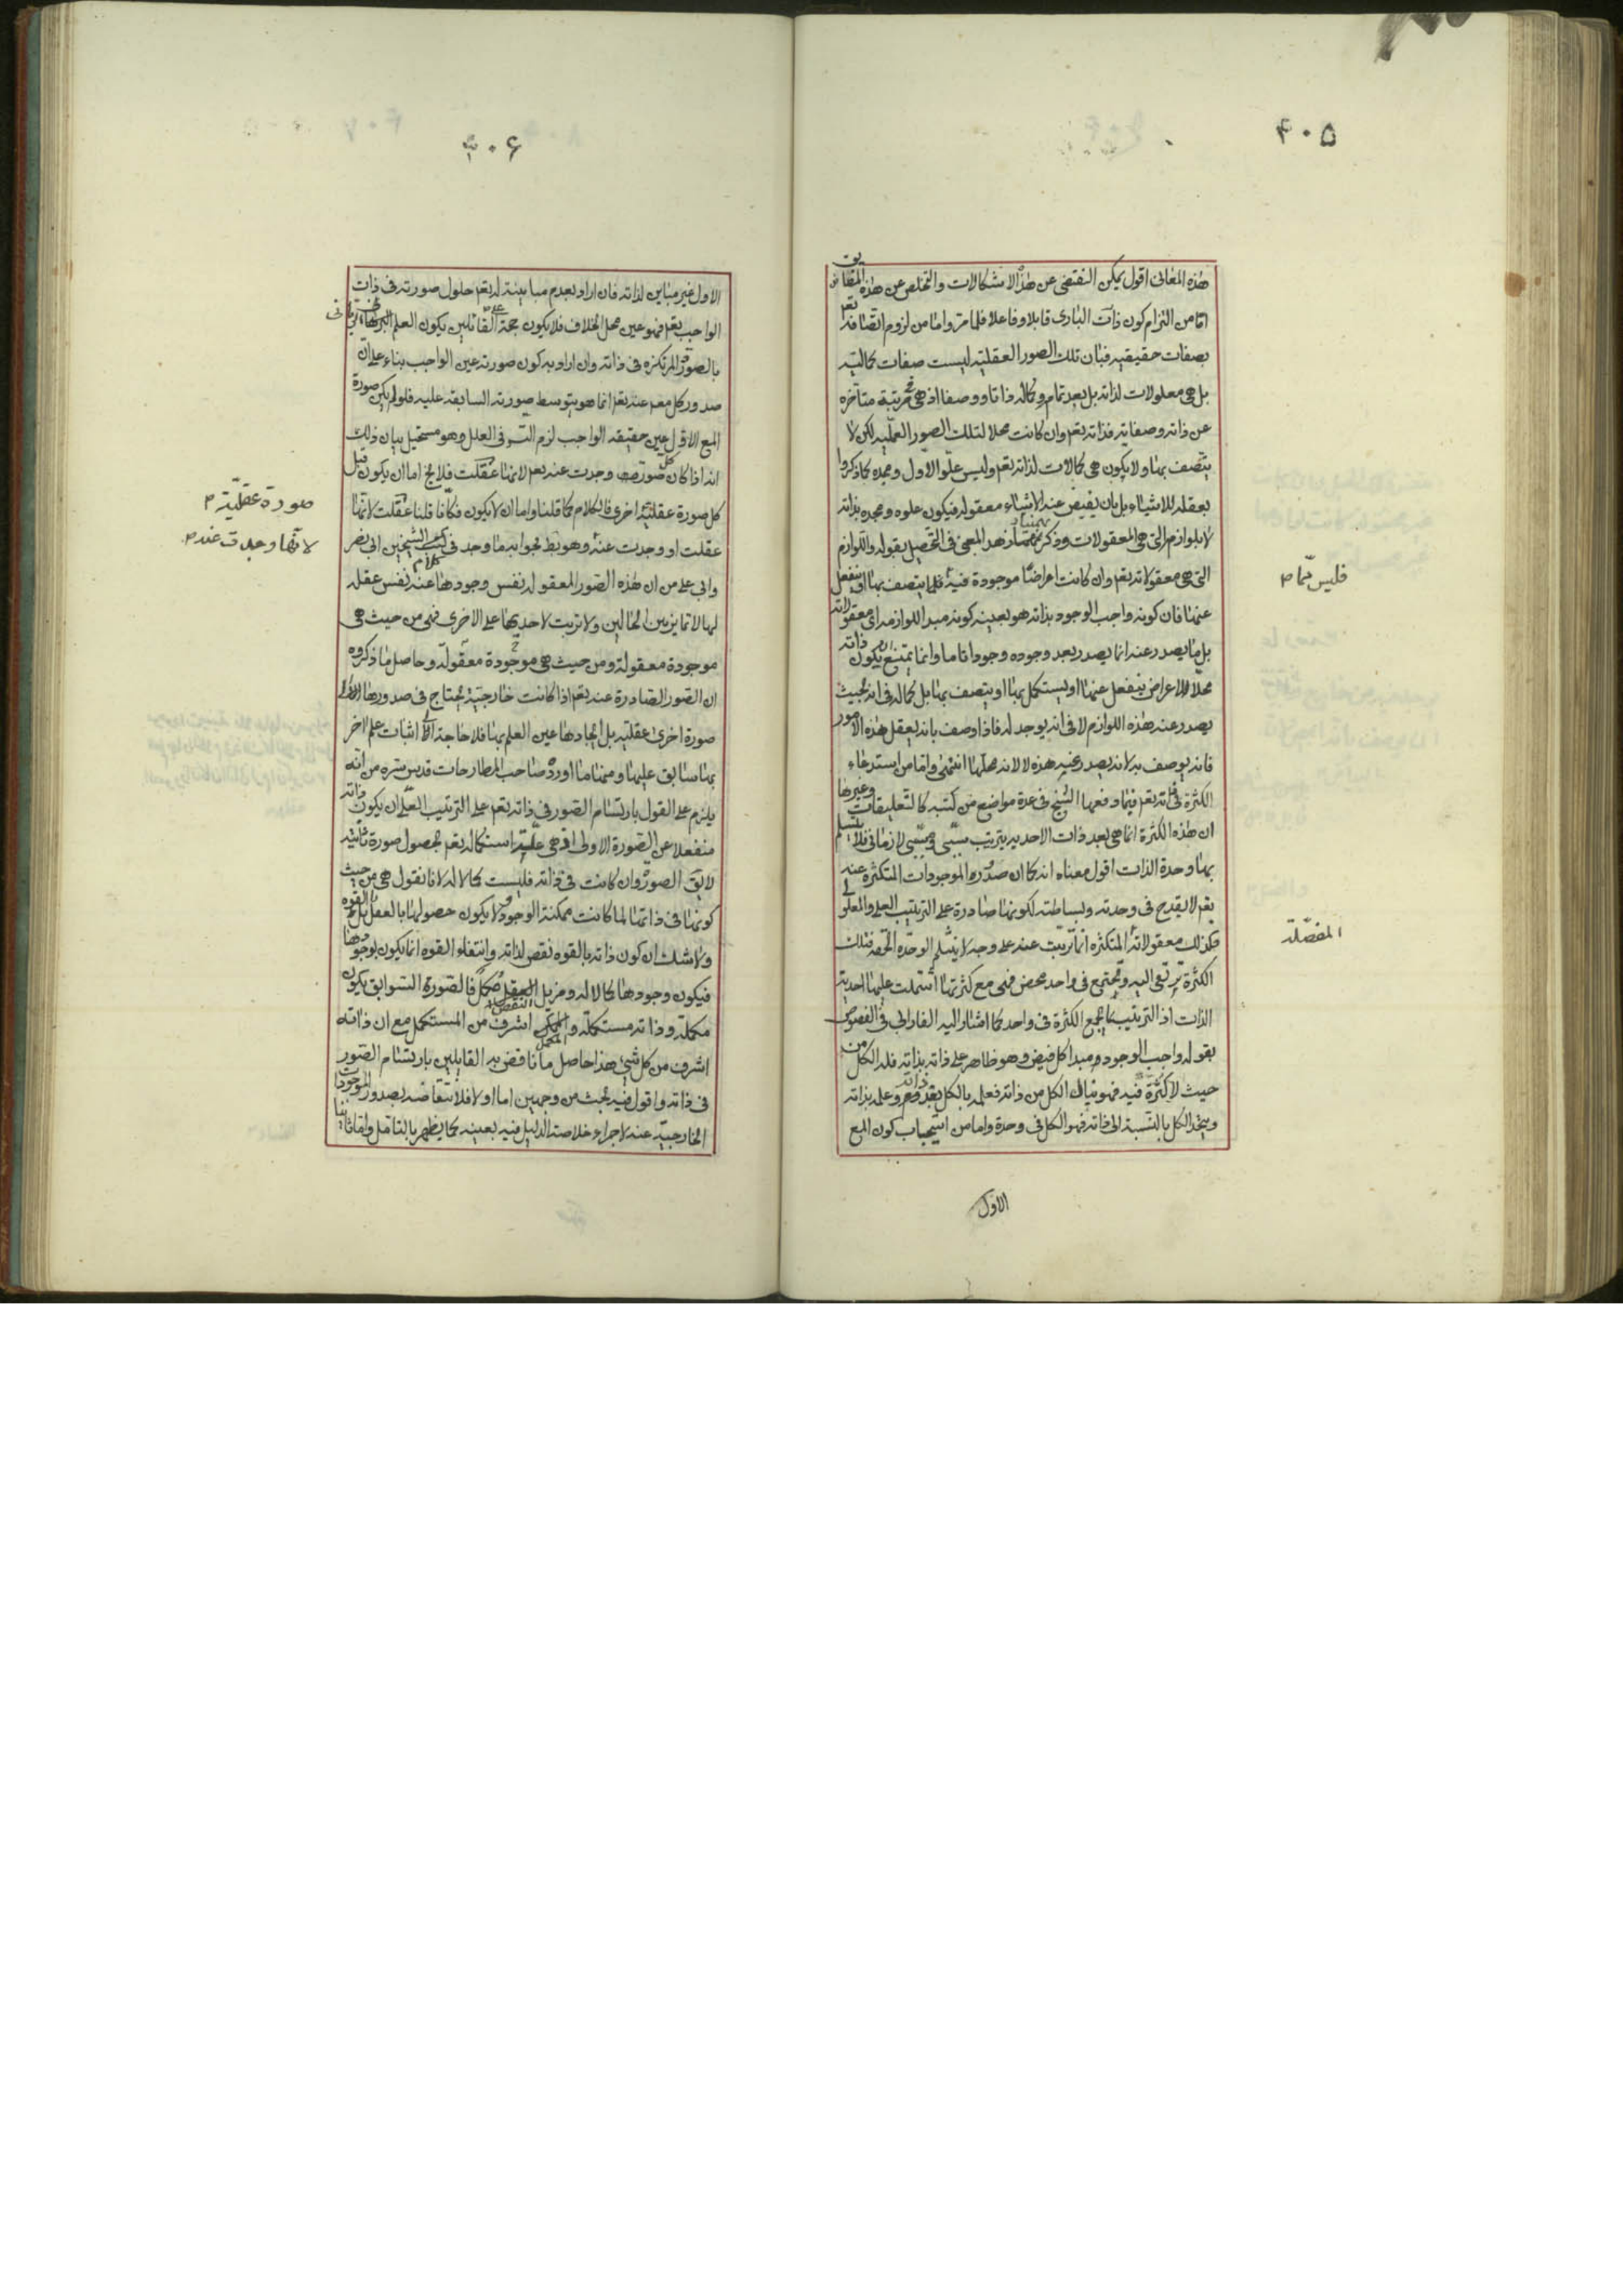 ۴۰۵
هذه المعانى اقول يمكن التفصّى عن هذه الاشكالات والتخلص عن هذه المضايق
امّا من التزام كون ذات البارى قابلا وفاعلا فلما مرّ واما من لزوم اتصافه تعم
بصفات حقيقيه فبان تلك الصور العقليّه ليست صفات كماليّه
بل هى معلولات لذاته بل بعد تمام وكاله ذاتا ووصفا اذ هى فى مرتبة متاخره
عن ذاته وصفاته فذاته تعم وان كانت محلا لتلك الصور العلميّه لكن لا
يتّصف بها ولا يكون هى كمالات لذاته تعم وليس علوّ الاول ومجده كما ذكروا
بعقله للاشياء بل بان يفيض عنه الاشياء معقوله فيكون علوه ومجده بذاته
لا بلوازمه التى هى المعقولات وذكر بهمنيار هذا المعنى فى التحصيل بقوله واللوازم
التى هى معقولاته تعم وان كانت اعراضا موجودة فيه فليس ممّا يتصف بها او ينفعل
عنها فان كونه واجب الوجود بذاته هو بعينه كونه مبدا للوازمه اى معقولاته
بل ما يصدر عنه انما يصدر بعد وجوده وجودا تاما وانما يمتنع ان يكون ذاته
محلّا لاعراض ينفعل عنها او يستكمل بها او يتصف بها بل كماله فى انه بحيث
يصدر عنه هذه اللوازم لا فى انه يوجد له فاذا وصف بانه يعقل هذه الامور
فانه يوصف به لانه يصدر عنه هذه لا لانه محلها انتهى واما من استدعاء
الكثرة فى ذاته تعم فيما دفعها الشيخ فى عدة مواضع من كتبه كالتعليقات وغيرها
ان هذه الكثرة انما هى بعد ذات الاحديه بترتيب سببى ومسببى لا زمانى فلا ينثلم
بها وحدة الذات اقول معناه انه كما ان صدور الموجودات المتكثره عنه
تعم لا يقدح فى وحدته وبساطته لكونها صادرة على الترتيب العلى والمعلولى
فكذلك معقولاته المتكثره انما ترتّبت عنه على وجه لا ينثلم الوحده الحقه فتلك
الكثرة ترتقى اليه وتجتمع فى واحد محض فهى مع كثرتها اشتملت عليها احدية
الذات اذ الترتيب يجمع الكثرة فى واحد كما اشار اليه الفارابى فى الفصوص
بقوله واجب الوجود مبدا كل فيض وهو ظاهر على ذاته بذاته فله الكل من
حيث لا كثرة فيه فهو ينال الكل من ذاته فعلمه بالكل بعد ذاته وعلمه بذاته
ويتحد الكل بالنسبة الى ذاته فهو الكل فى وحدة واما من استيجاب كون المع
الاول
فليس ممّا م
المفصّلة
۴۰۶
الاول غير مباين لذاته فان اراد بعدم مباينته له تعم حلول صورته فى ذات
الواجب تعم فهو عين محل الخلاف فلا يكون حجة على القائلين بكون العلم
بالصور المرتكزه فى ذاته وان اراد به كون صورته عين الواجب بناء على انّ
صدور كل مع عنه تعم انما هو بتوسط صورته السابقه عليه فلو لم يكن صورة
المع الاوّل عين حقيقه الواجب لزم التس فى العلل وهو مستحيل بيان ذلك
انه اذا كان كل صورة وجدت عنه تعم لانها عقلت فلا يخ اما ان يكون قبل
كل صورة عقليّه اخرى فالكلام كما قلنا واما ان لا يكون فكانّا قلنا عقلت لانها
عقلت او وجدت عنه وهو بط فجوابه ما وجد فى كتب الشيخين ابى نصر
وابى على من ان هذه الصور المعقوله نفس وجودها عنه نفس عقله
لها لا تمايز بين الحالين ولا ترتب لاحديهما على الاخرى فهى من حيث هى
موجودة معقوله ومن حيث هى معقوله موجودة وحاصل ما ذكروه
ان الصور الصادرة عنه تعم اذا كانت خارجيّة يحتاج فى صدورها الى
صورة اخرى عقليّه بل ايجادها عين العلم بها فلا حاجة الى اثبات علم اخر
بها سابق عليها ومنها ما اورده صاحب المطارحات قدس سره من انّه
يلزم على القول بارتسام الصور فى ذاته تعم على الترتيب العلّى ان يكون ذاته
منفعلا عن الصورة الاولى اذ هى علّة استكماله تعم بحصول صورة ثانيه
لا يق الصور وان كانت فى ذاته فليست كمالا له لانا نقول هى من حيث
كونها فى ذاتها لما كانت ممكنة الوجود لا يكون حصولها بالفعل بل بالقوه
ولا شك ان كون ذاته بالقوه نقص لذاته وانتفاء القوه انما يكون بوجودها
فيكون وجودها كمالا له ومزيل النقص مكمل فالصورة السوابق يكون
مكملة وذاته مستكملة والمكمل اشرف من المستكمل مع ان ذاته
اشرف من كل شئ هذا حاصل ما ناقض به القايلين بارتسام الصور
فى ذاته واقول فيه بحث من وجهين اما اولا فلانتقاضه بصدور الموجودات
الخارجيّه عنه لاجراء خلاصة الدليل فيه بعينه كما يظهر بالتامل واما ثانيا
صورة عقليّة م
لانها وجدت عنه م